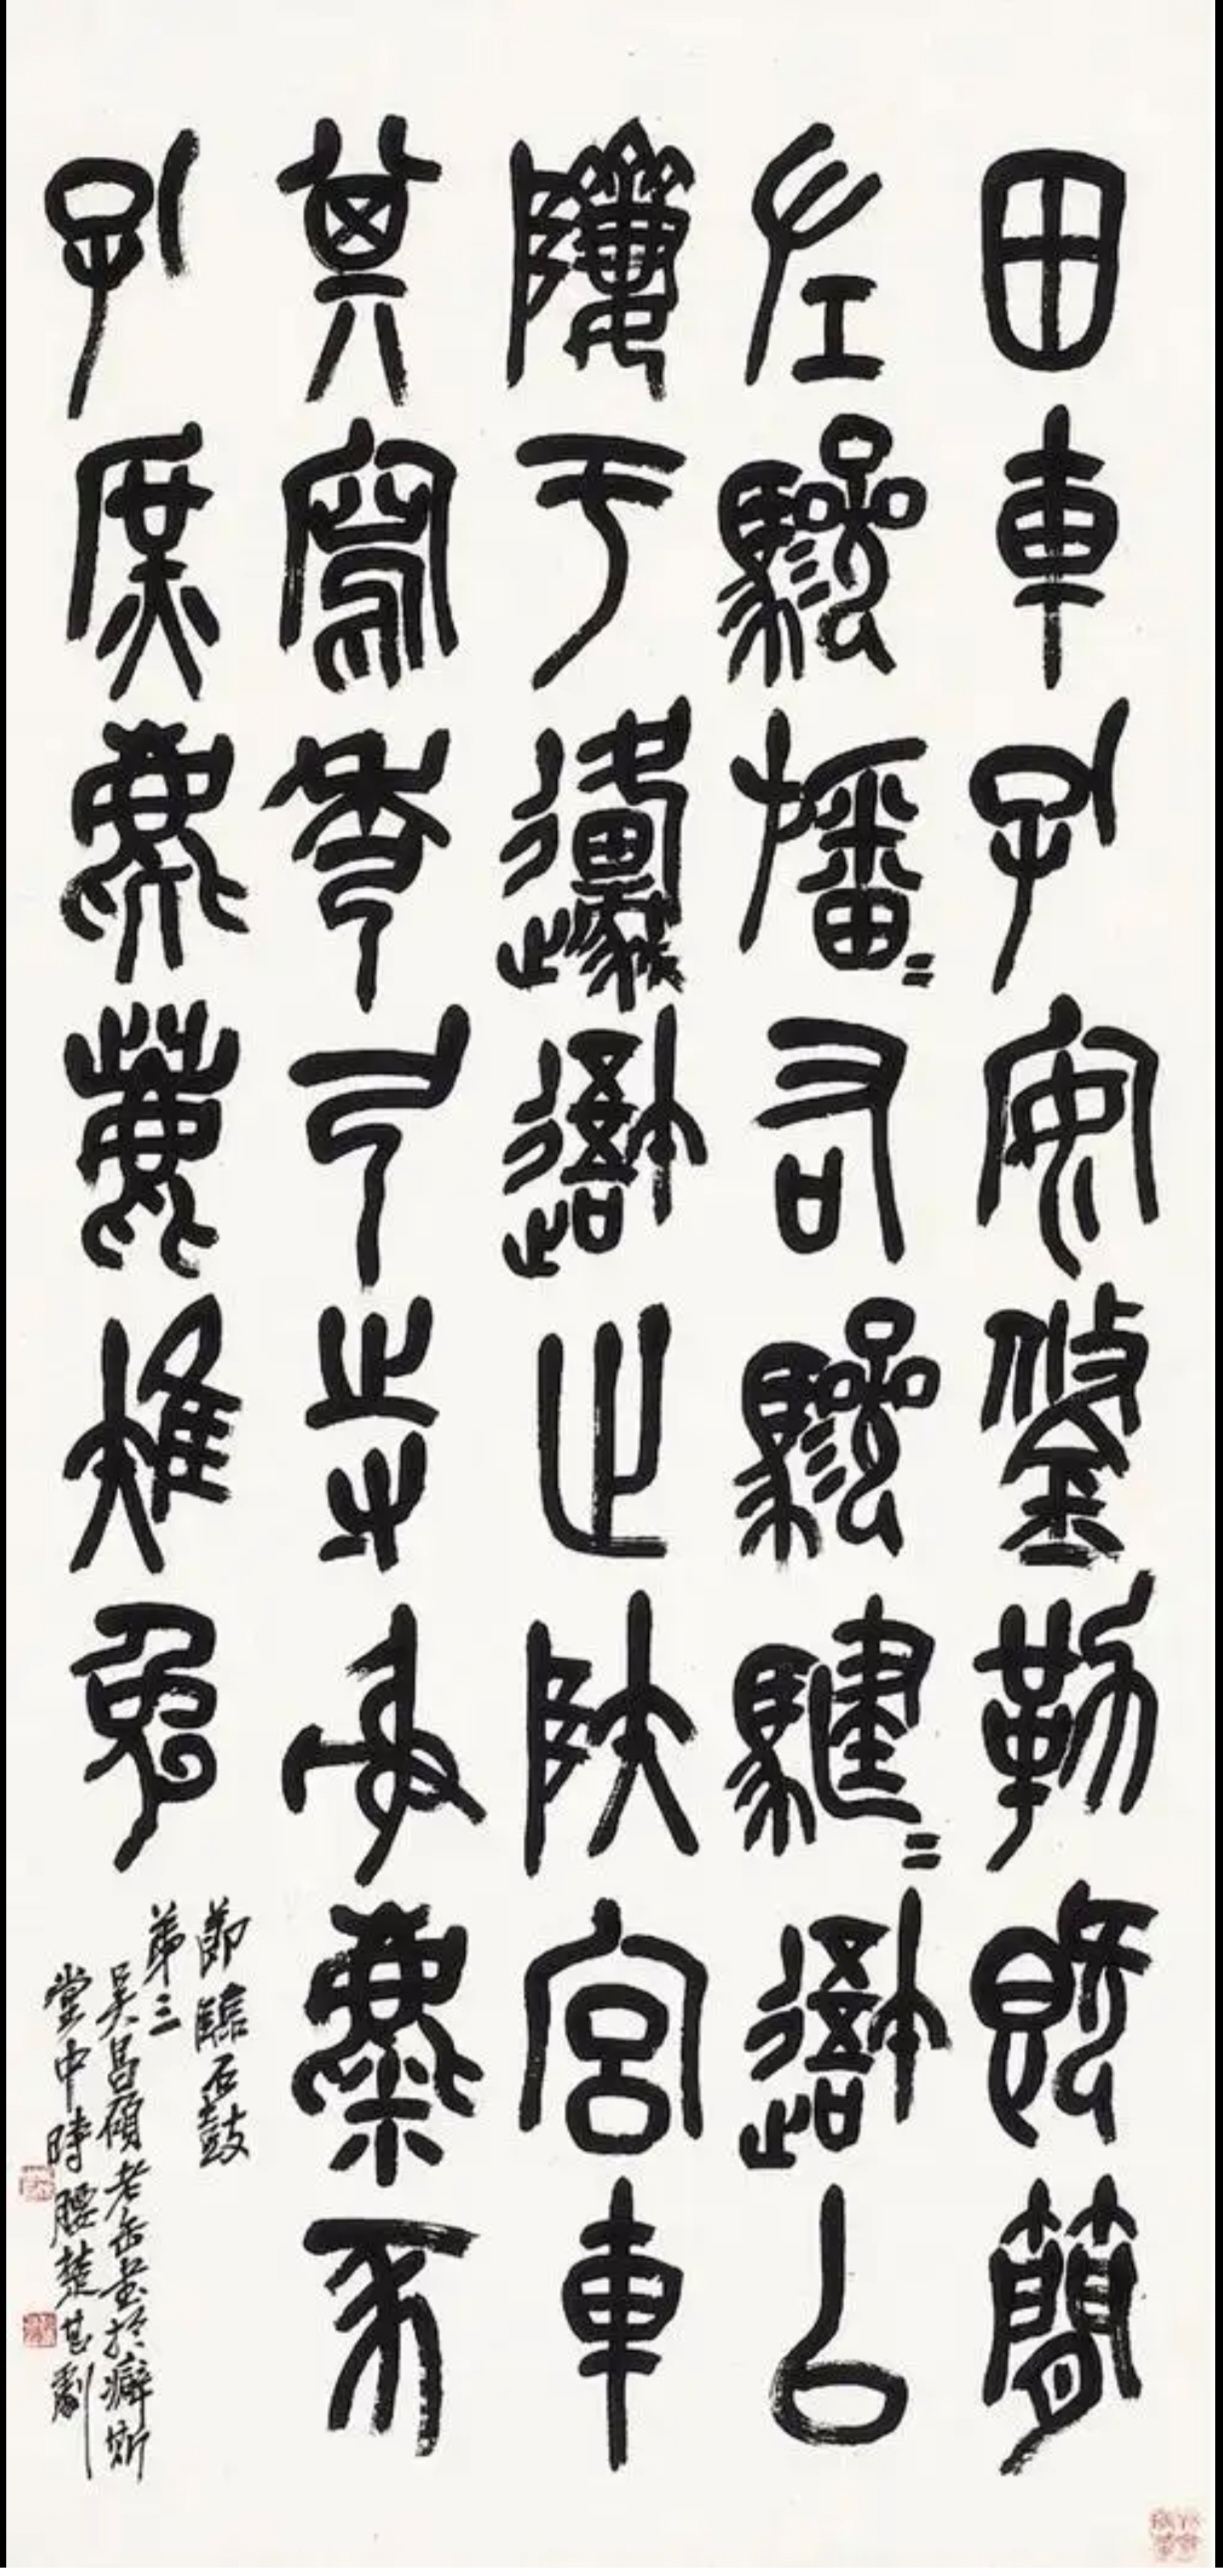 田車孔安鋚勒既簡
左驂旛=右驂騝=𨖍以
隮于邍𨖍止陕宮車
其寫秀弓寺射麋豕
孔庶麀鹿雉兔
節臨石鼓
第三
吳昌碩老缶書於癖斯
堂中時腰楚甚劇